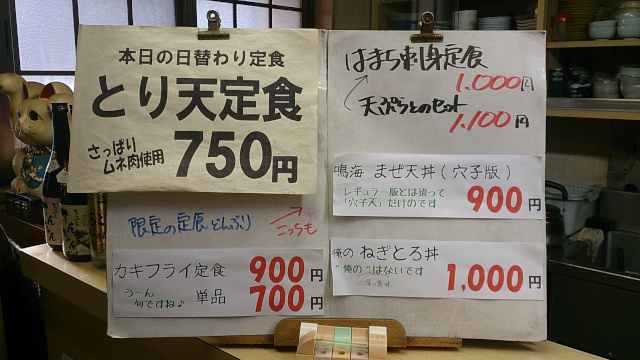 本日の日替わり定食
とり天定食
さっぱり
ムネ肉使用
750円
限定の定食 どんぶり
こっちも
カキフライ定食 900円
うーん
旬ですね♪
単品 700円
はまち刺身定食
1.000円
天ぷらとのセット
1.100円
鳴海 まぜ天丼(穴子版)
レギュラー版とは違って
「穴子天」だけのです
900円
俺の ねぎとろ丼
"俺の"はないです
1,000円